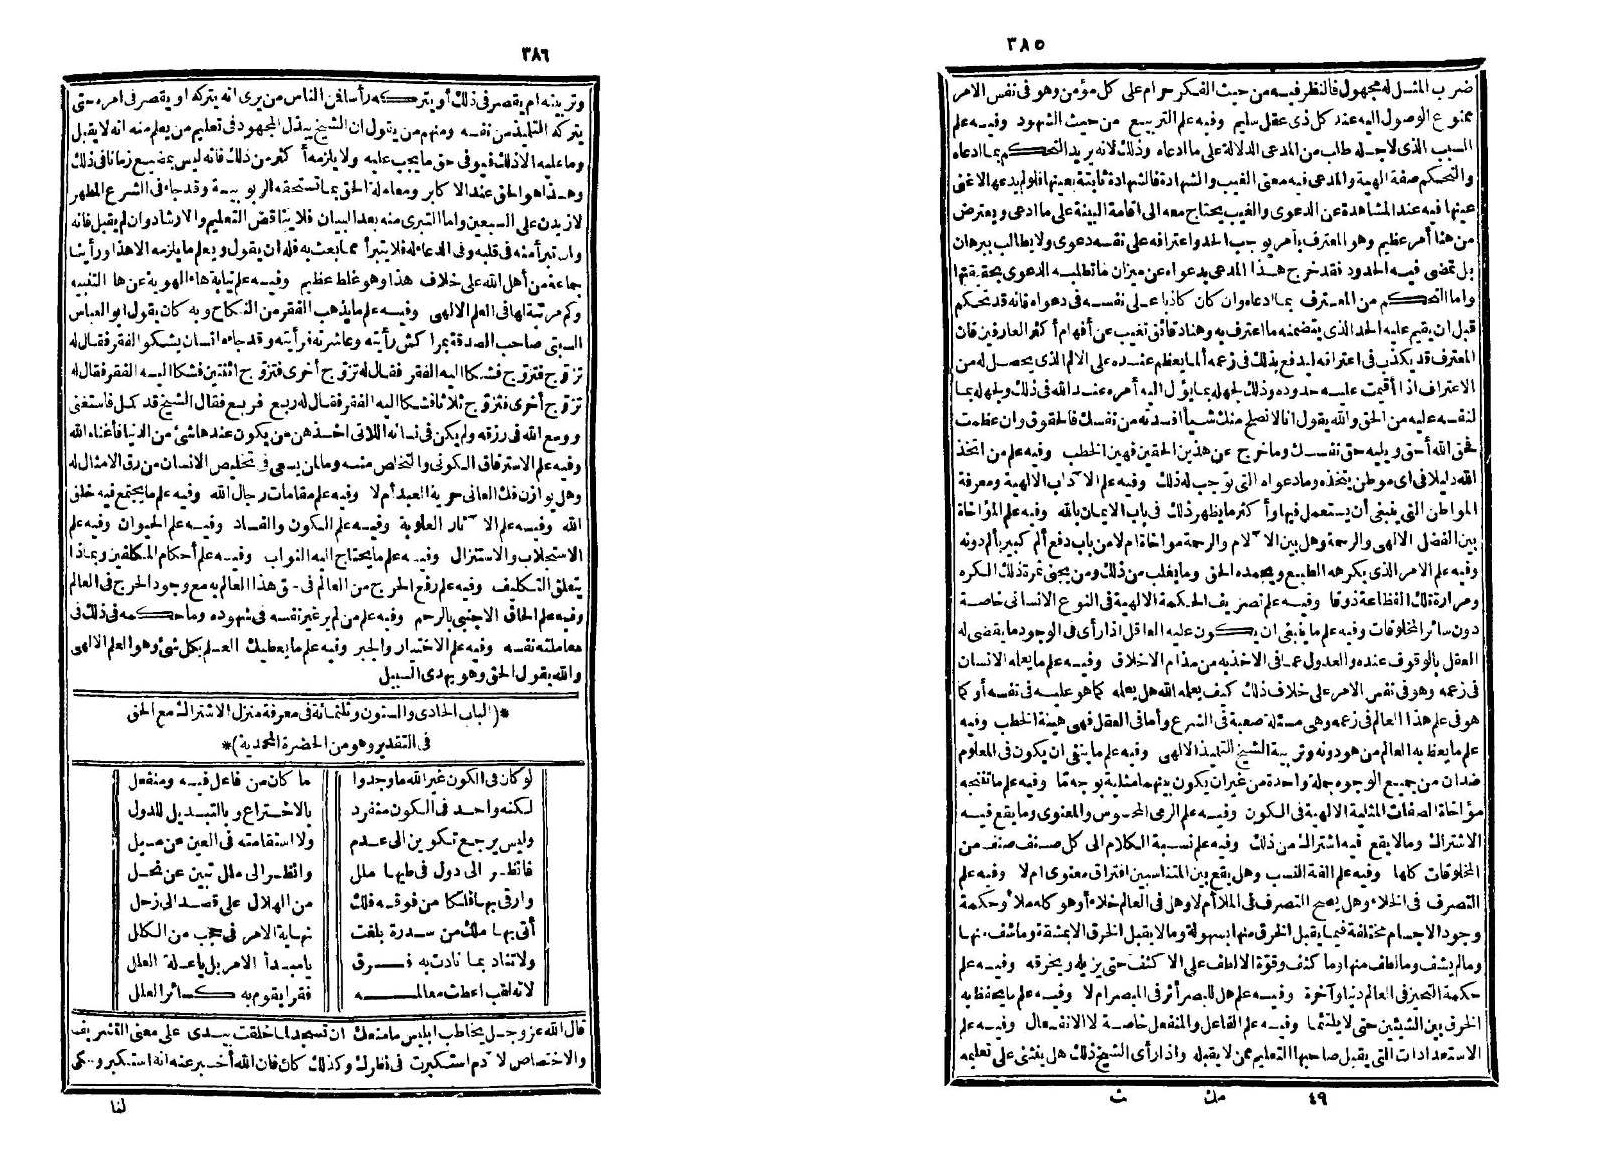 ٣٨٥
ضرب المثل له مجهول فالنظر فيه من حيث الفكر حرام على كل مؤمن وهو في نفس الامر
ممنوع الوصول اليه عند كل ذى عقل سليم وفيه علم التربيع من حيث الشهود وفيه علم
السبب الذى لاجله طلب من المدعى الدلالة على ما ادعاه وذلك لانه يريد التحكم بما ادعاه
والتحكم صفة الهية والمدعى فيه معنى الغيب والشهادة فالشهادة ثابتة بعينها فلولم يدعها لاغنى
عينها فيه عند المشاهدة عن الدعوى والغيب يحتاج معه الى اقامة البينة على ما ادعى ويعترض
من هنا أمر عظيم وهو المعترف بأمر يوجب الحد واعترافه على نفسه دعوى ولا يطالب ببرهان
بل تمضى فيه الحدود فقد خرج هذا المدعى بدعواه عن ميزان ما تطلبه الدعوى بحقيقتها
واما التحكم من المعترف بما ادعاه وان كان كاذبا على نفسه فى دعواه فانه قد تحكم
قبل ان يقيم عليه الحد الذى يتضمنه ما اعترف به وهنا دقائق تغيب عن أفهام أكثر العارفين فان
المعترف قد يكذب فى اعترافه ليدفع بذلك فى زعمه ألما يعظم عنده على الالم الذى يحصل له من
الاعتراف اذا أقيمت عليه حدوده وذلك لجهله بما يؤل اليه أمره عند الله فى ذلك ولجهله بما
لنفسه عليه من الحق والله يقول انا لا نصلح منك شيأ أفسدته من نفسك فالحقوق وان عظمت
فحق الله أحق ويليه حق نفسك وما خرج عن هذين الحقين فهين الخطب وفيه علم من اتخذ
الله دليلا فى اى موطن يتخذه وما دعواه التى توجب له ذلك وفيه علم الآداب الالهية ومعرفة
المواطن التى ينبغى أن يستعمل فيها وأكثر ما يظهر ذلك فى باب الايمان بالله وفيه علم المؤاخاة
بين الفضل الالهى والرحمة وهل بين الآلام والرحمة مواخاة ام لا من باب دفع ألم كبير بألم دونه
وفيه علم الامر الذى يكرهه الطبع ويحمده الحق وما يغلب من ذلك ومن يجنى ثمرة ذلك الكره
ومرارة تلك الفظاعة ذوقا وفيه علم تصريف الحكمة الالهية فى النوع الانسانى خاصة
دون سائر المخلوقات وفيه علم ما ينبغى ان يكون عليه العاقل اذا رأى فى الوجود ما يقضى له
العقل بالوقوف عنده والعدول عما فى الاخذ به من مذام الاخلاق وفيه علم ما يعلمه الانسان
فى زعمه وهو فى نفس الامر على خلاف ذلك كيف يعلمه الله هل يعلمه كما هو عليه فى نفسه أو كما
هو فى علم هذا العالم فى زعمه وهى مسئلة صعبة فى الشرع وأما فى العقل فهى هينة الخطب وفيه
علم ما يعظ به العالم من هو دونه وتربية الشيخ التلميذ الالهى وفيه علم ما ينفى ان يكون فى المعلوم
ضدان من جميع الوجوه جملة واحدة من غير ان يكون بينهما مثلية بوجه ما وفيه علم ما تنتجه
مؤاخاة الصفات المثلية الالهية فى الكون وفيه علم الرمى المحسوس والمعنوى وما يقع فيه
الاشتراك وما لا يقع فيه اشتراك من ذلك وفيه علم نسبة الكلام الى كل صنف صنف من
المخلوقات كلها وفيه علم الفة النسب وهل يقع بين المتناسبين افتراق معنوى ام لا وفيه علم
التصرف فى الخلاء وهل يصح التصرف فى الملأ أم لا وهل فى العالم خلاء أو هو كله ملأ وحكمة
وجود الاجسام مختلفة فيما يقبل الخرق منها بسهولة وما لا يقبل الخرق الا بمشقة وما شف منها
وما لم يشف وما لطف منها وما كثف وقوة الالطف على الاكثف حتى يزيله ويخرقه وفيه علم
حكمة التحيز فى العالم دنيا وآخرة وفيه علم هل للبصر أثر فى المبصر ام لا وفيه علم ما يحفظ به
الخرق بين الشيئين حتى لا يلتئما وفيه علم الفاعل والمنفعل خاصة لا الانفعال وفيه علم
الاستعدادات التى يقبل صاحبها التعليم ممن لا يقبله واذا رأى الشيخ ذلك هل يغشى على تعليمه
٤٩ مك ث
٣٨٦
وتربيته ام يقصر فى ذلك أو يتركه رأسا فان الناس من يرى انه يتركه او يقصر فى امره حتى
يتركه التلميذ من نفسه ومنهم من يقول ان الشيخ يبذل المجهود فى تعليم من يعلم منه انه لا يقبل
وما عليه الا ذلك فيوفى حق ما يجب عليه ولا يلزمه أكثر من ذلك فانه ليس بمضيع زمانا فى ذلك
وهذا هو الحق عند الاكابر ومعاملة الحق بما تستحقه الربوبية وقد جاء فى الشرع المطهر
لازيدن على السبعين واما التبرى منه بعد البيان فلا يناقض التعليم والارشاد وان لم يقبل فانه
وان تبرأ منه فى قلبه وفى الدعاء له فلا يتبرأ مما بعث به فله ان يقول ويعلم ما يلزمه الا هذا ورأينا
جماعة من أهل الله على خلاف هذا وهو غلط عظيم وفيه علم نيابة هاء الهوية عن ها التنبيه
وكم مرتبة لها فى العلم الالهى وفيه علم ما يذهب الفقر من النكاح وبه كان يقول ابو العباس
السبتى صاحب الصدقة بمراكش رأيته وعاشرته فرأيته وقد جاءه انسان يشكو الفقر فقال له
تزوج فتزوج فشكا اليه الفقر فقال له تزوج أخرى فتزوج اثنتين فشكا اليه الفقر فقال له
تزوج أخرى فتزوج ثلاثا فشكا اليه الفقر فقال له ربع فربع فقال الشيخ قد كمل فاستغنى
ووسع الله فى رزقه ولم يكن فى نسائه اللاتى اخذهن من يكون عندها شئ من الدنيا فأغناه الله
وفيه علم الاسترقاق الكونى والتخلص منه وما لمن يسعى فى تخليص الانسان من رق الامثال له
وهل يوازن فك العانى حرية العبد أم لا وفيه علم مقامات رجال الله وفيه علم ما يجتمع فيه خلق
الله وفيه علم الآثار العلوية وفيه علم الكون والفساد وفيه علم الحيوان وفيه علم
الاستجلاب والاستنزال وفيه علم ما يحتاج اليه النواب وفيه علم أحكام المكلفين وبماذا
يتعلق التكليف وفيه علم رفع الحرج من العالم فى حق هذا العالم به مع وجود الحرج فى العالم
وفيه علم الحاق الاجنبى بالرحم وفيه علم من لم ير غير نفسه فى شهوده وما حكمه فى ذلك فى
معاملته نفسه وفيه علم الاختيار والجبر وفيه علم ما يعطيك العلم بكل شئ وهو العلم الالهى
والله يقول الحق وهو يهدى السبيل
*(الباب الحادى والستون وثلثمائة فى معرفة منزل الاشتراك مع الحق
فى التقدير وهو من الحضرة المحمدية)*
لو كان فى الكون غير الله ما وجدوا ما كان من فاعل فيه ومنفعل
لكنه واحد فى الكون منفرد بالاختراع وبالتبديل للدول
وليس يرجع تكوين الى عدم ولا استقامته فى العين عن ميل
فانظر الى دول فى طيها ملل وانظر الى ملل تبين عن نحل
وارقى بها فلكا من فوقه فلك من الهلال على قصد الى زحل
أتى بها ملك من سدرة بلغت نهاية الامر فى حجب من الكلل
ولا تناد بما نادت به فرق يا مبدأ الامر بل يا علة العلل
لانه لقب اعطت معالمه فقرا يقوم به كسائر العلل
قال الله عز وجل يخاطب ابليس ما منعك ان تسجد لما خلقت بيدى على معنى التشريف
والاختصاص لآدم استكبرت فى نظرك وكذلك كان فان الله أخبر عنه انه استكبر وحكى
لنا